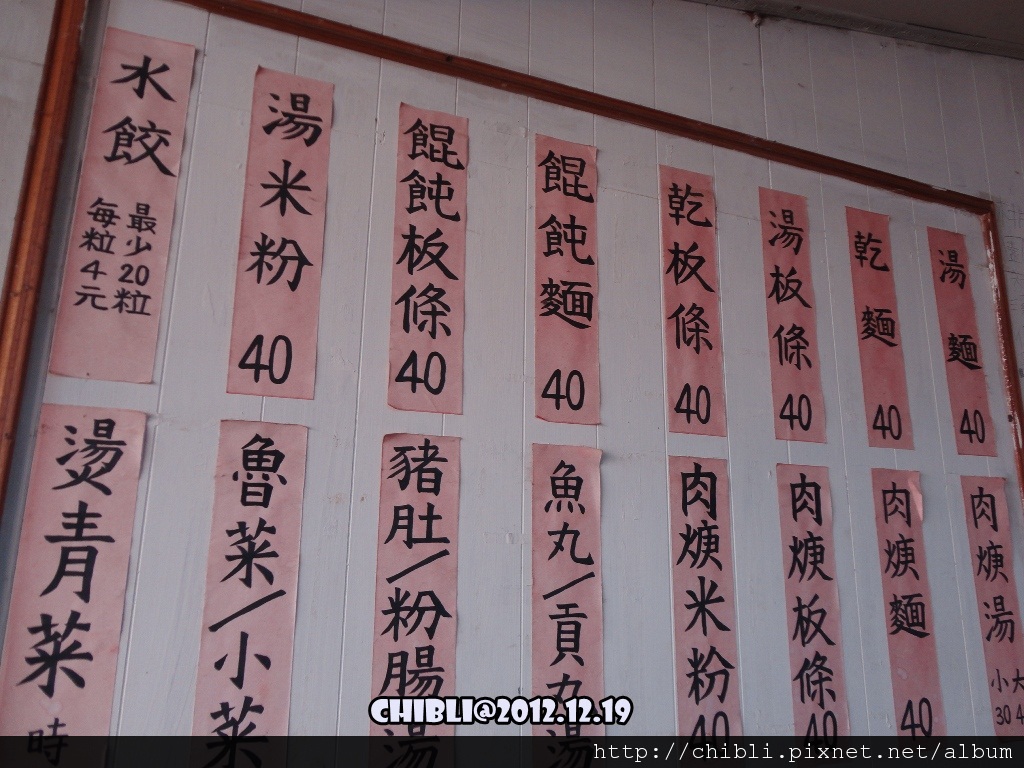 湯麵 40
乾麵 40
湯板條 40
乾板條 40
餛飩麵 40
餛飩板條 40
湯米粉 40
水餃 最少20粒 每粒4元
肉焿湯 大4 小30
肉焿麵 40
肉焿板條 40
肉焿米粉 40
魚丸/貢丸湯
豬肚/粉腸湯
魯菜/小菜
燙青菜 時
CHIBLI@2012.12.19
http://chibli.pixnet.net/album